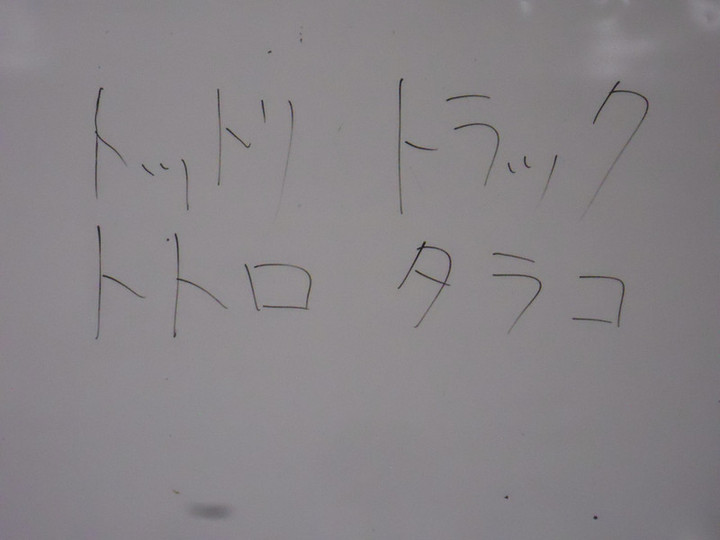 トットリ トラック
トトロ タラコ